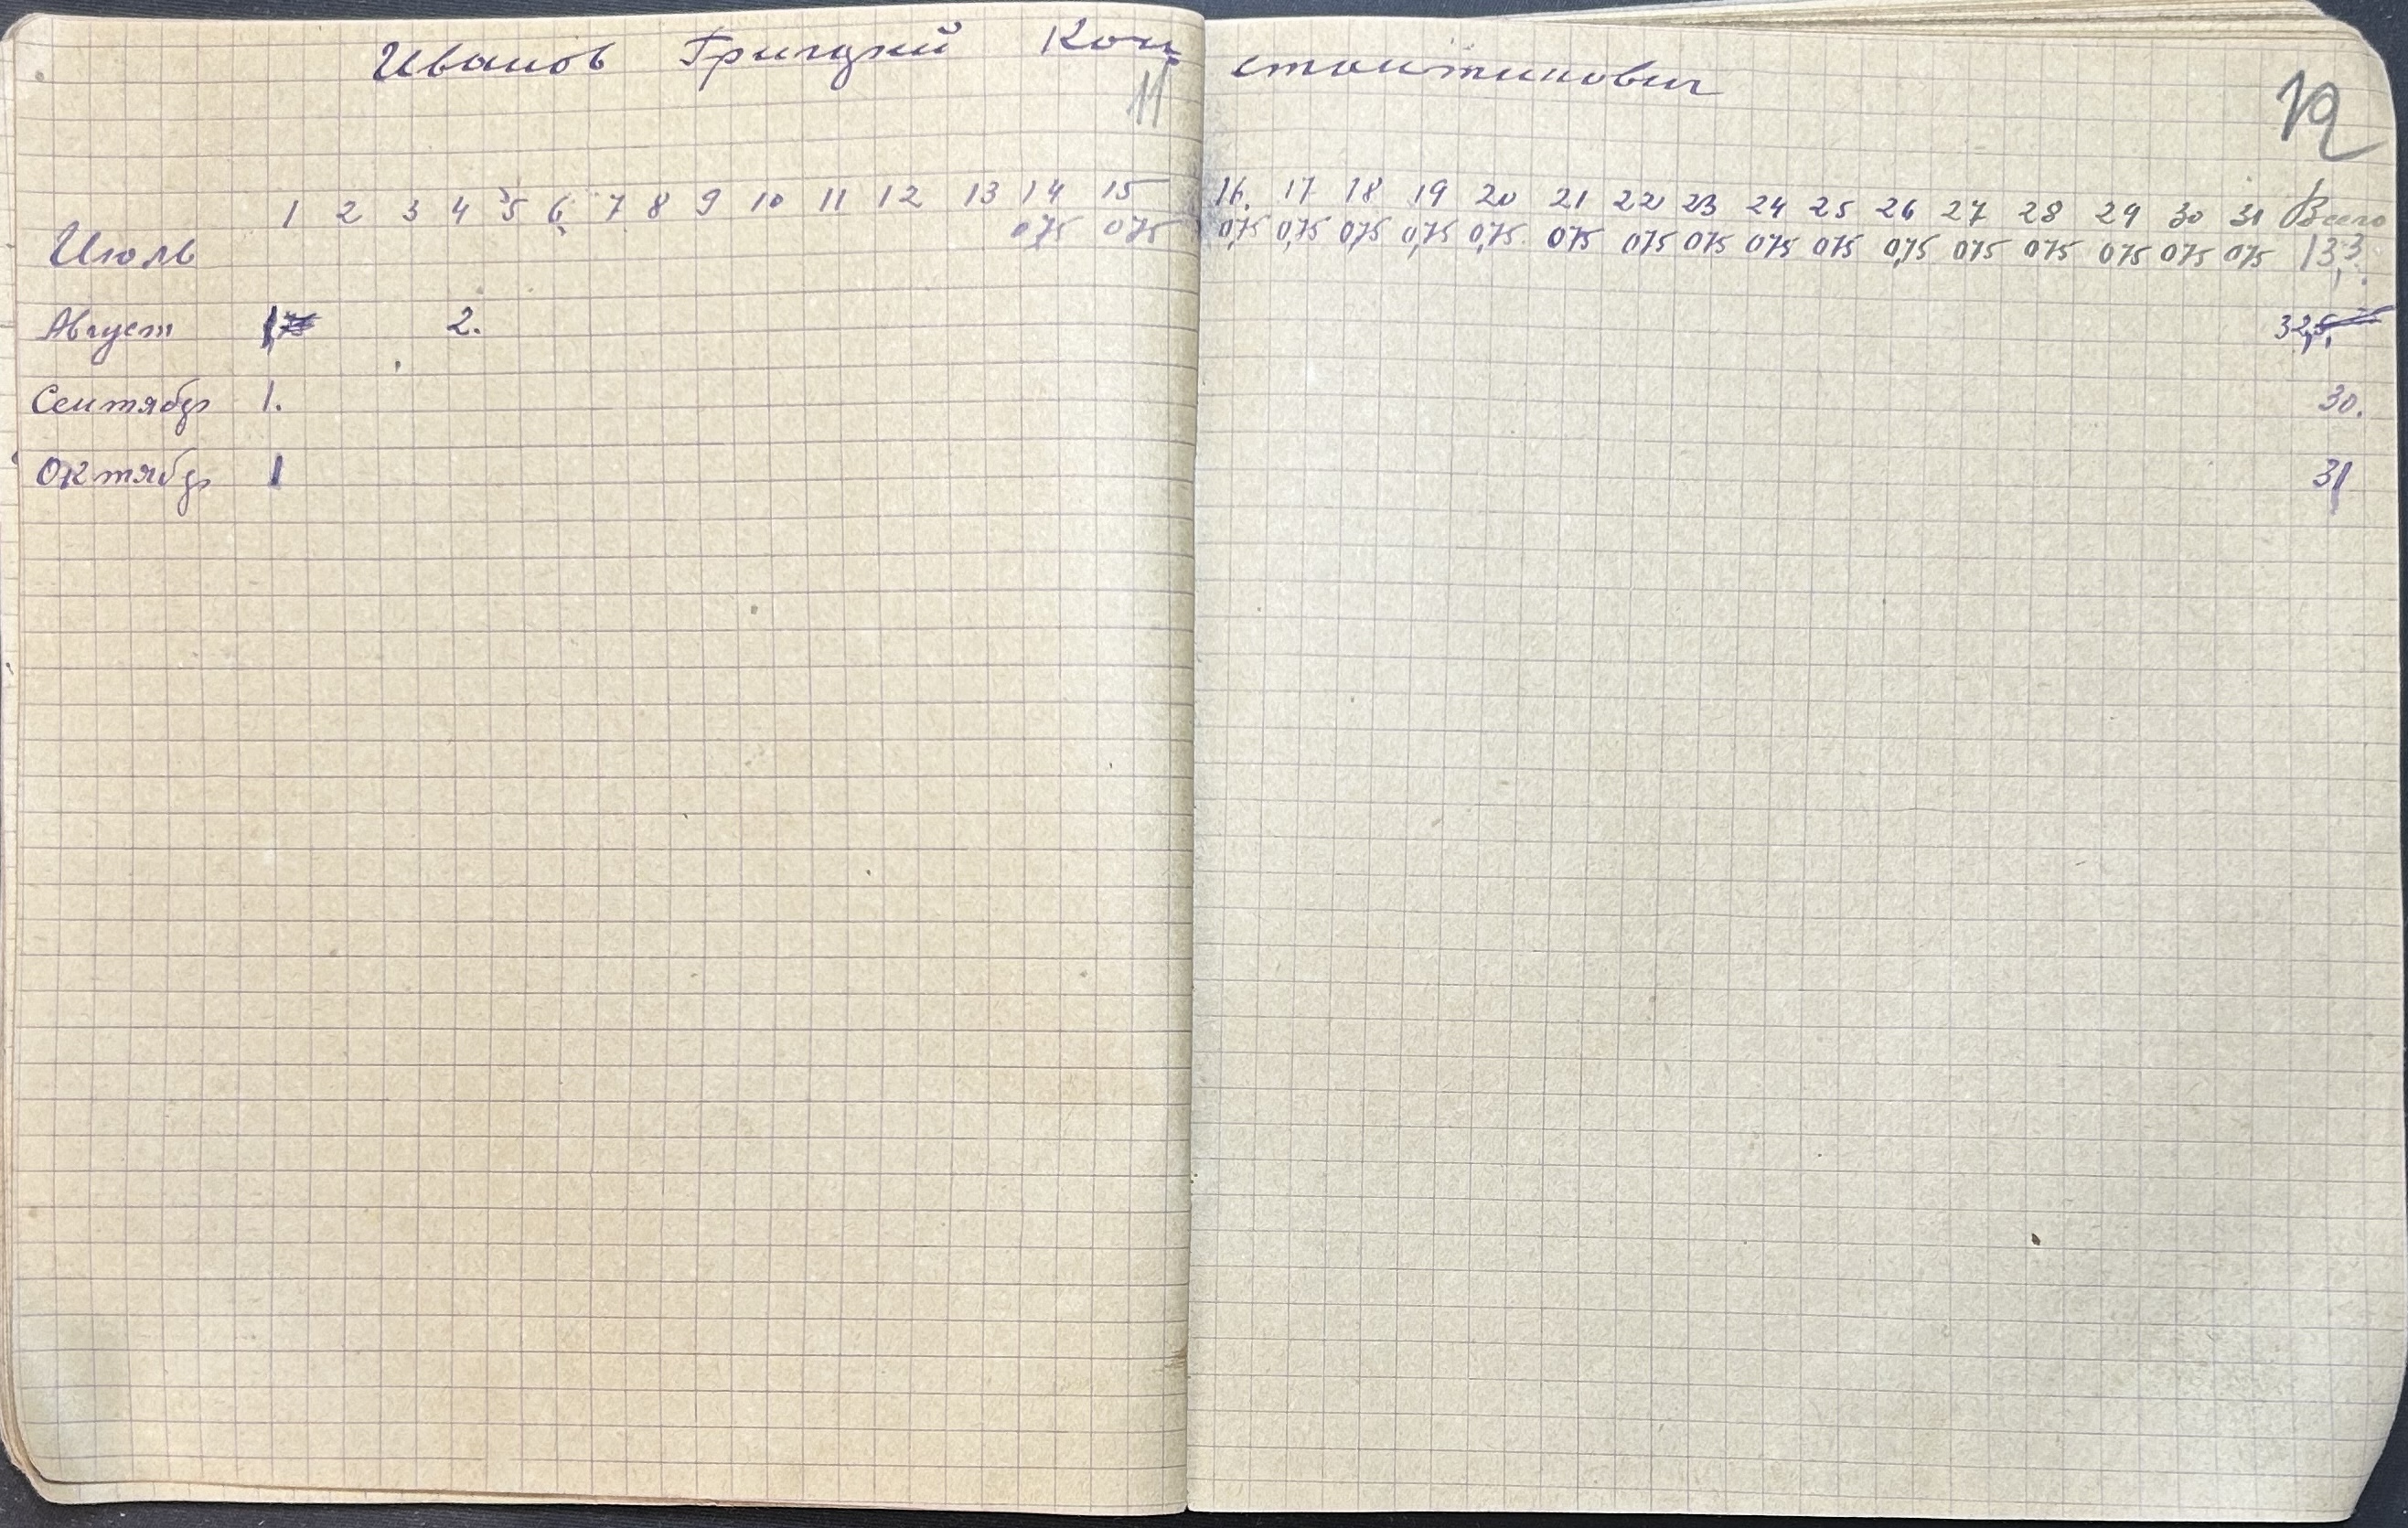 Иванов Григорий Кон стантинович
11 12
1 2 3 4 5 6 7 8 9 10 11 12 13 14 15 16 17 18 19 20 21 22 23 24 25 26 27 28 29 30 31 Всего
Июль 075 075 0,75 0,75 0,75 0,75 0,75 075 075 075 075 075 0,75 075 075 075 075 075 13,3
Август 1 2. 32,5
Сентябр 1. 30.
Октябр 1 31